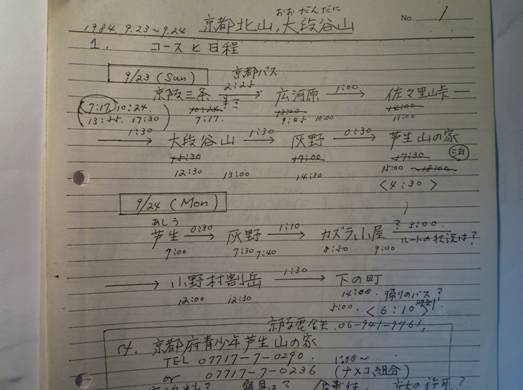 1984. 9.23~9.24 京都北山,大段谷山 No. 1
おおだんだに
1. コースと日程
9/23 (Sun) 京都バス
京阪三条 2:25 広河原 1:00 佐々里峠
7:17 10:24 10:24 13:00 14:00
13:25 17:30 7:17. 9:45 10:00 11:00
1:30 大段谷山 1:30 灰野 0:30 芦生山の家
15:30 17:00 17:30 18:00
12:30 13:00 14:30 15:00 泊
<4:30>
9/24 (Mon)
あしう
芦生 0:30 灰野 1:10 カズラ小屋 ? 3:00
7:00 7:30 7:40 8:50 9:00 ルートの状況は?
小野村割岳 1:30 下の町
12:00 12:30 14:00 帰りのバス?
5:00. <6:10>
06-941-9461
京都府青少年芦生山の家
TEL 07717-7-0290.
or 07717-7-0236 (ナメコ組合)